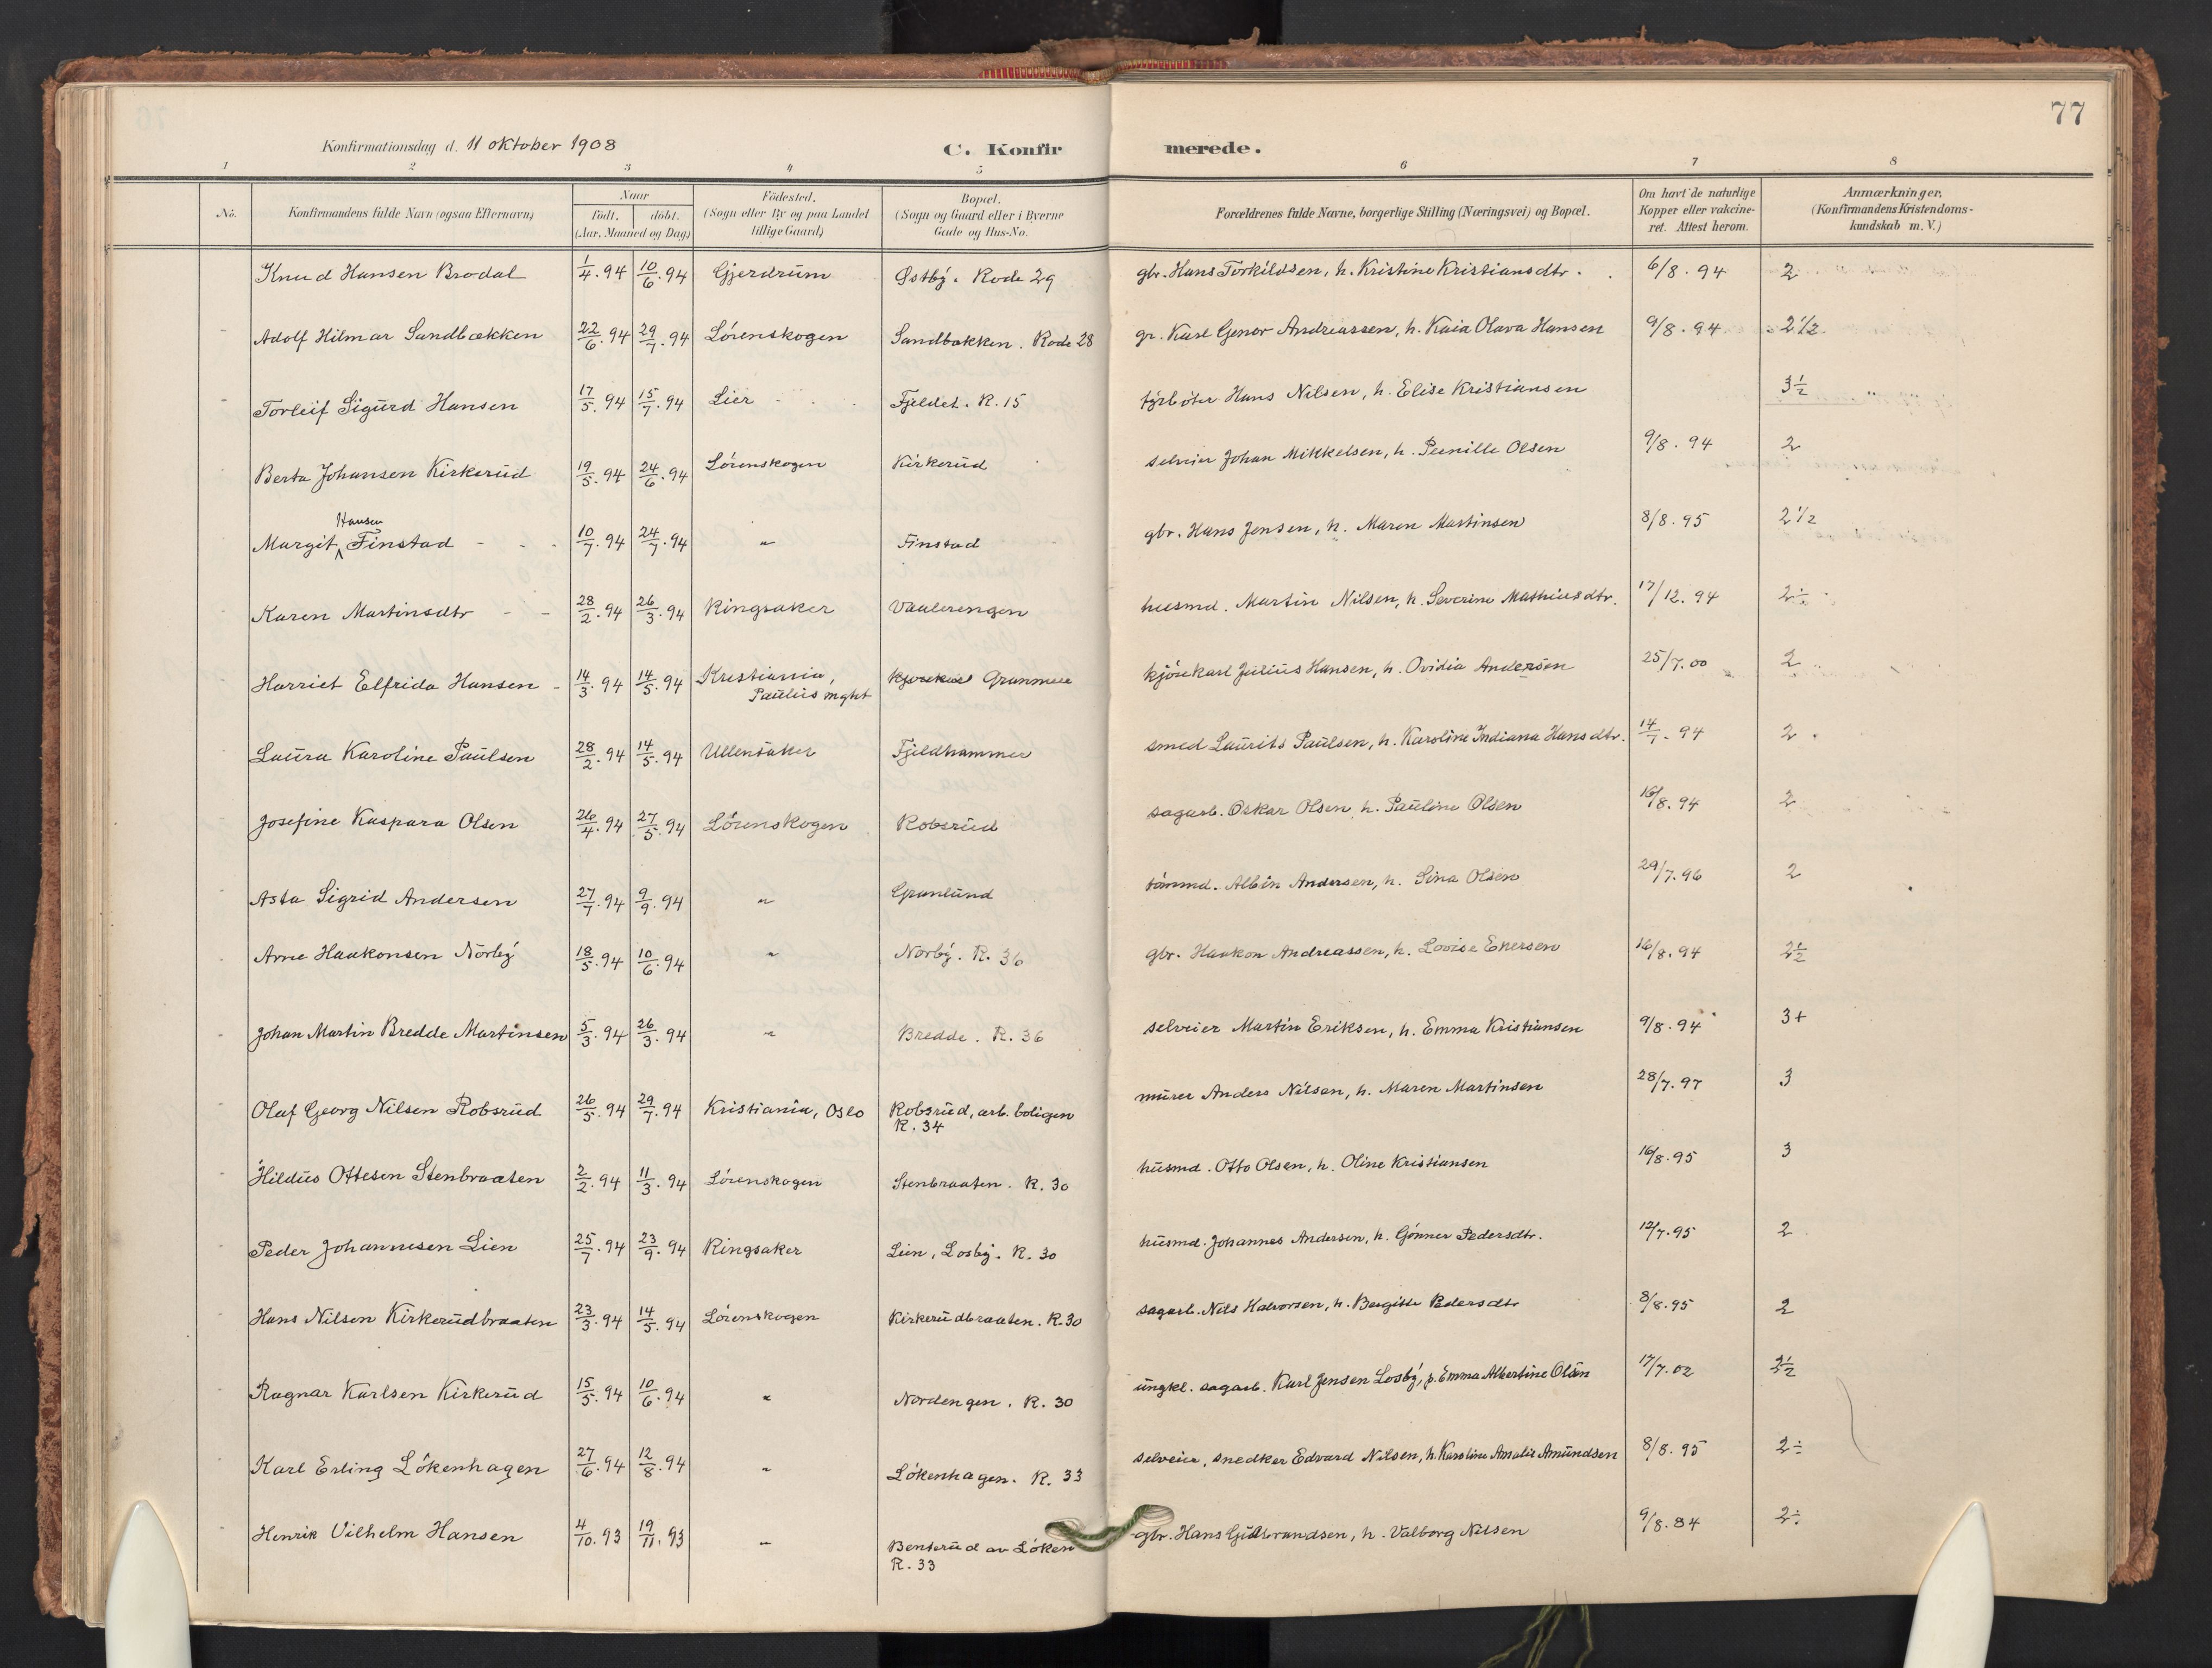 77
Konfirmationsdag d. 11 oktober 1908 C. Konfir merede.
1 2 3 4 5 6 7 8
No. Konfirmandens fulde Navn (ogsaa Efternavn) Naar födt. döbt. (Aar, Maaned og Dag) Födested. (Sogn eller By og paa Landet tillige Gaard) Bopæl. (Sogn og Gaard eller i Byerne Gade og Hus-No. Forældrenes fulde Navne, borgerlige Stilling (Næringsvei) og Bopæl. Om havt de naturlige Kopper eller vakcineret. Attest herom. Anmærkninger. (Konfirmandens Kristendomskundskab m.V.)
Knud Hansen Brodal 1/4.94 10/6.94 Gjerdrum Østby. Rode 29 gbr. Hans Torkildsen, h. Kristine Kristiansdtr. 6/8.94 2
Adolf Hilmar Sandbækken 22/6.94 29/7.94 Lörenskogen Sandbækken. Rode 28 gr. Karl Genor Andreassen, h. Kaia Olava Hansen 9/8.94 2 1/2
Torleif Sigurd Hansen 17/5.94 15/7.94 Lier Fjeldet. R. 15 fyrböter Hans Nilsen, h. Elise Kristiansen 3 1/2
Berta Johansen Kirkerud 19/5.94 24/6.94 Lörenskogen Kirkerud selveier Johan Mikkelsen, h. Pernille Olsen 9/8.94 2
Margit Hansen Finstad 10/7.94 24/7.94 " Finstad gbr. Hans Jensen, h. Maren Martinsen 8/8.95 2 1/2
Karen Martinsdtr 28/2.94 26/3.94 Ringsaker Vaalerengen husmd. Martin Nilsen, h. Severine Mathiasdtr. 17/12.94 2÷
Harriet Elfrida Hansen 14/3.94 14/5.94 Kristiania, Paulus mght Granmere kjörekarl Julius Hansen, h. Ovidia Andersen 25/7.00 2
Laura Karoline Paulsen 28/2.94 14/5.94 Ullensaker Fjeldhammer smed Laurits Paulsen, h. Karoline Indiana Hansdtr. 14/7.94 2
Josefine Kaspara Olsen 26/4.94 27/5.94 Lörenskogen Robsrud sagarb. Oskar Olsen, h. Pauline Olsen 16/8.94 2
Asta Sigrid Andersen 27/7.94 9/9.94 " Granlund tömmd. Albin Andersen, h. Lina Olsen 29/7.96 2
Arne Haakonsen Nörby 18/5.94 10/6.94 " Norby. R. 36 gbr. Haakon Andreassen, h. Lovise Enersen 16/8.94 2 1/2
Johan Martin Bredde Martinsen 5/3.94 26/3.94 " Bredde. R. 36 selveier Martin Eriksen, h. Emma Kristiansen 9/8.94 3+
Olaf Georg Nilsen Robsrud 26/5.94 29/7.94 Kristiania, Oslo Robsrud, arb. boligen R. 34 murer Anders Nilsen, h. Maren Martinsen 28/7.97 3
Hildus Ottesen Stenbraaten 2/2.94 11/3.94 Lörenskogen Stenbraaten. R. 30 husmd. Otto Olsen, h. Oline Kristiansen 16/8.95 3
Peder Johannesen Lien 25/7.94 23/9.94 Ringsaker Lien, Losby. R. 30 husmd. Johannes Andersen, h. Gönner Pedersdtr. 12/7.95 2
Hans Nilsen Kirkerudbraaten 23/3.94 14/5.94 Lörenskogen Kirkerudbraaten. R. 30 sagarb. Nils Halvorsen, h. Bergitte Pedersdtr 8/8.95 2
Ragnar Karlsen Kirkerud 15/5.94 10/6.94 " Nordengen. R. 30 ungkl. sagarb. Karl Jensen Losby, p. Emma Albertine Olsen 17/7.02 2 1/2
Karl Erling Lökenhagen 27/6.94 12/8.94 " Lökenhagen. R. 33 selveier, snedker Edvard Nilsen, h. Karoline Amalie Amundsen 8/8.95 2÷
Henrik Vilhelm Hansen 4/10.93 19/11.93 " Benterud av Löken R. 33 gbr. Hans Gulbrandsen, h. Valborg Nilsen 9/8.84 2÷